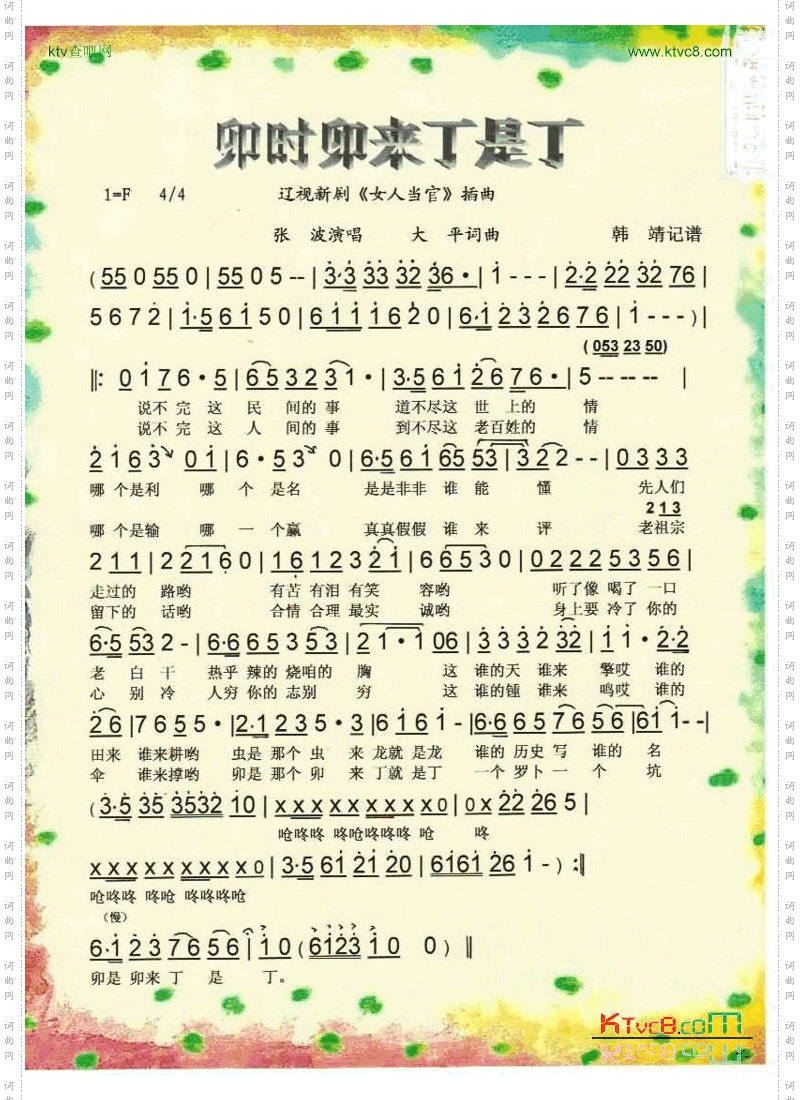 ktv查吧网
www.ktvc8.com
卯时卯来丁是丁
1=F 4/4 辽视新剧《女人当官》插曲
张 波演唱 大 平词曲 韩 靖记谱
(55 0 55 0 | 55 0 5 -- | 3·3 33 32 36· | 1 - - - | 2·2 22 32 76 |
5 6 7 2 | 1·5 6 1 5 0 | 6 1 1 1 6 2 0 | 6·1 2 3 2 6 7 6 | 1 - - - ) |
(053 23 50)
‖: 0 1 7 6·5 | 6 5 3 2 3 1· | 3·5 6 1 2 6 7 6· | 5 -- -- -- |
说不 完 这 民 间的 事 道不尽这 世 上的 情
说不 完 这 人 间的 事 到不尽这 老百姓的 情
2 1 6 3 0 1 | 6·5 3 0 | 6·5 6 1 65 53 | 3 2 2 - - | 0 3 3 3
哪 个是利 哪 个 是名 是是非非 谁 能 懂 先人们
2 1 3
哪 个是输 哪 一 个赢 真真假假 谁 来 评 老祖宗
2 1 1 | 2 2 1 6 0 | 1 6 1 2 3 2 1 | 6 6 5 3 0 | 0 2 2 2 5 3 5 6 |
走过的 路哟 有苦 有泪 有笑 容哟 听了像 喝了 一口
留下的 话哟 合情 合理 最实 诚哟 身上要 冷了 你的
6·5 53 2 - | 6·6 6 5 3 5 3 | 2 1·1 06 | 3 3 3 2 32 | 1 1·2·2
老 白 干 热乎 辣的 烧咱的 胸 这 谁的天 谁来 擎哎 谁的
心 别 冷 人穷 你的 志别 穷 这 谁的锺 谁来 鸣哎 谁的
2 6 | 7 6 5 5· | 2·1 2 3 5·3 | 6 1 6 1 - | 6·6 6 5 7 6 5 6 | 6 1 1 - - |
田来 谁来耕哟 虫是 那个 虫 来 龙就 是龙 谁的 历史 写 谁的 名
伞 谁来撑哟 卯是 那个 卯 来 丁就 是丁 一个 罗卜 一 个 坑
(3·5 35 3532 10 | x x x x x x x x x 0 | 0 x 22 26 5 |
呛咚咚 咚呛咚咚咚 呛 咚
x x x x x x x x x 0 | 3·5 61 21 20 | 6161 26 1 - ) :‖
呛咚咚 咚呛 咚咚咚呛
(慢)
6·1 2 3 7 6 5 6 | 1 0 (6123 1 0 0 ) ‖
卯是 卯来 丁 是 丁。
KTvc8.com